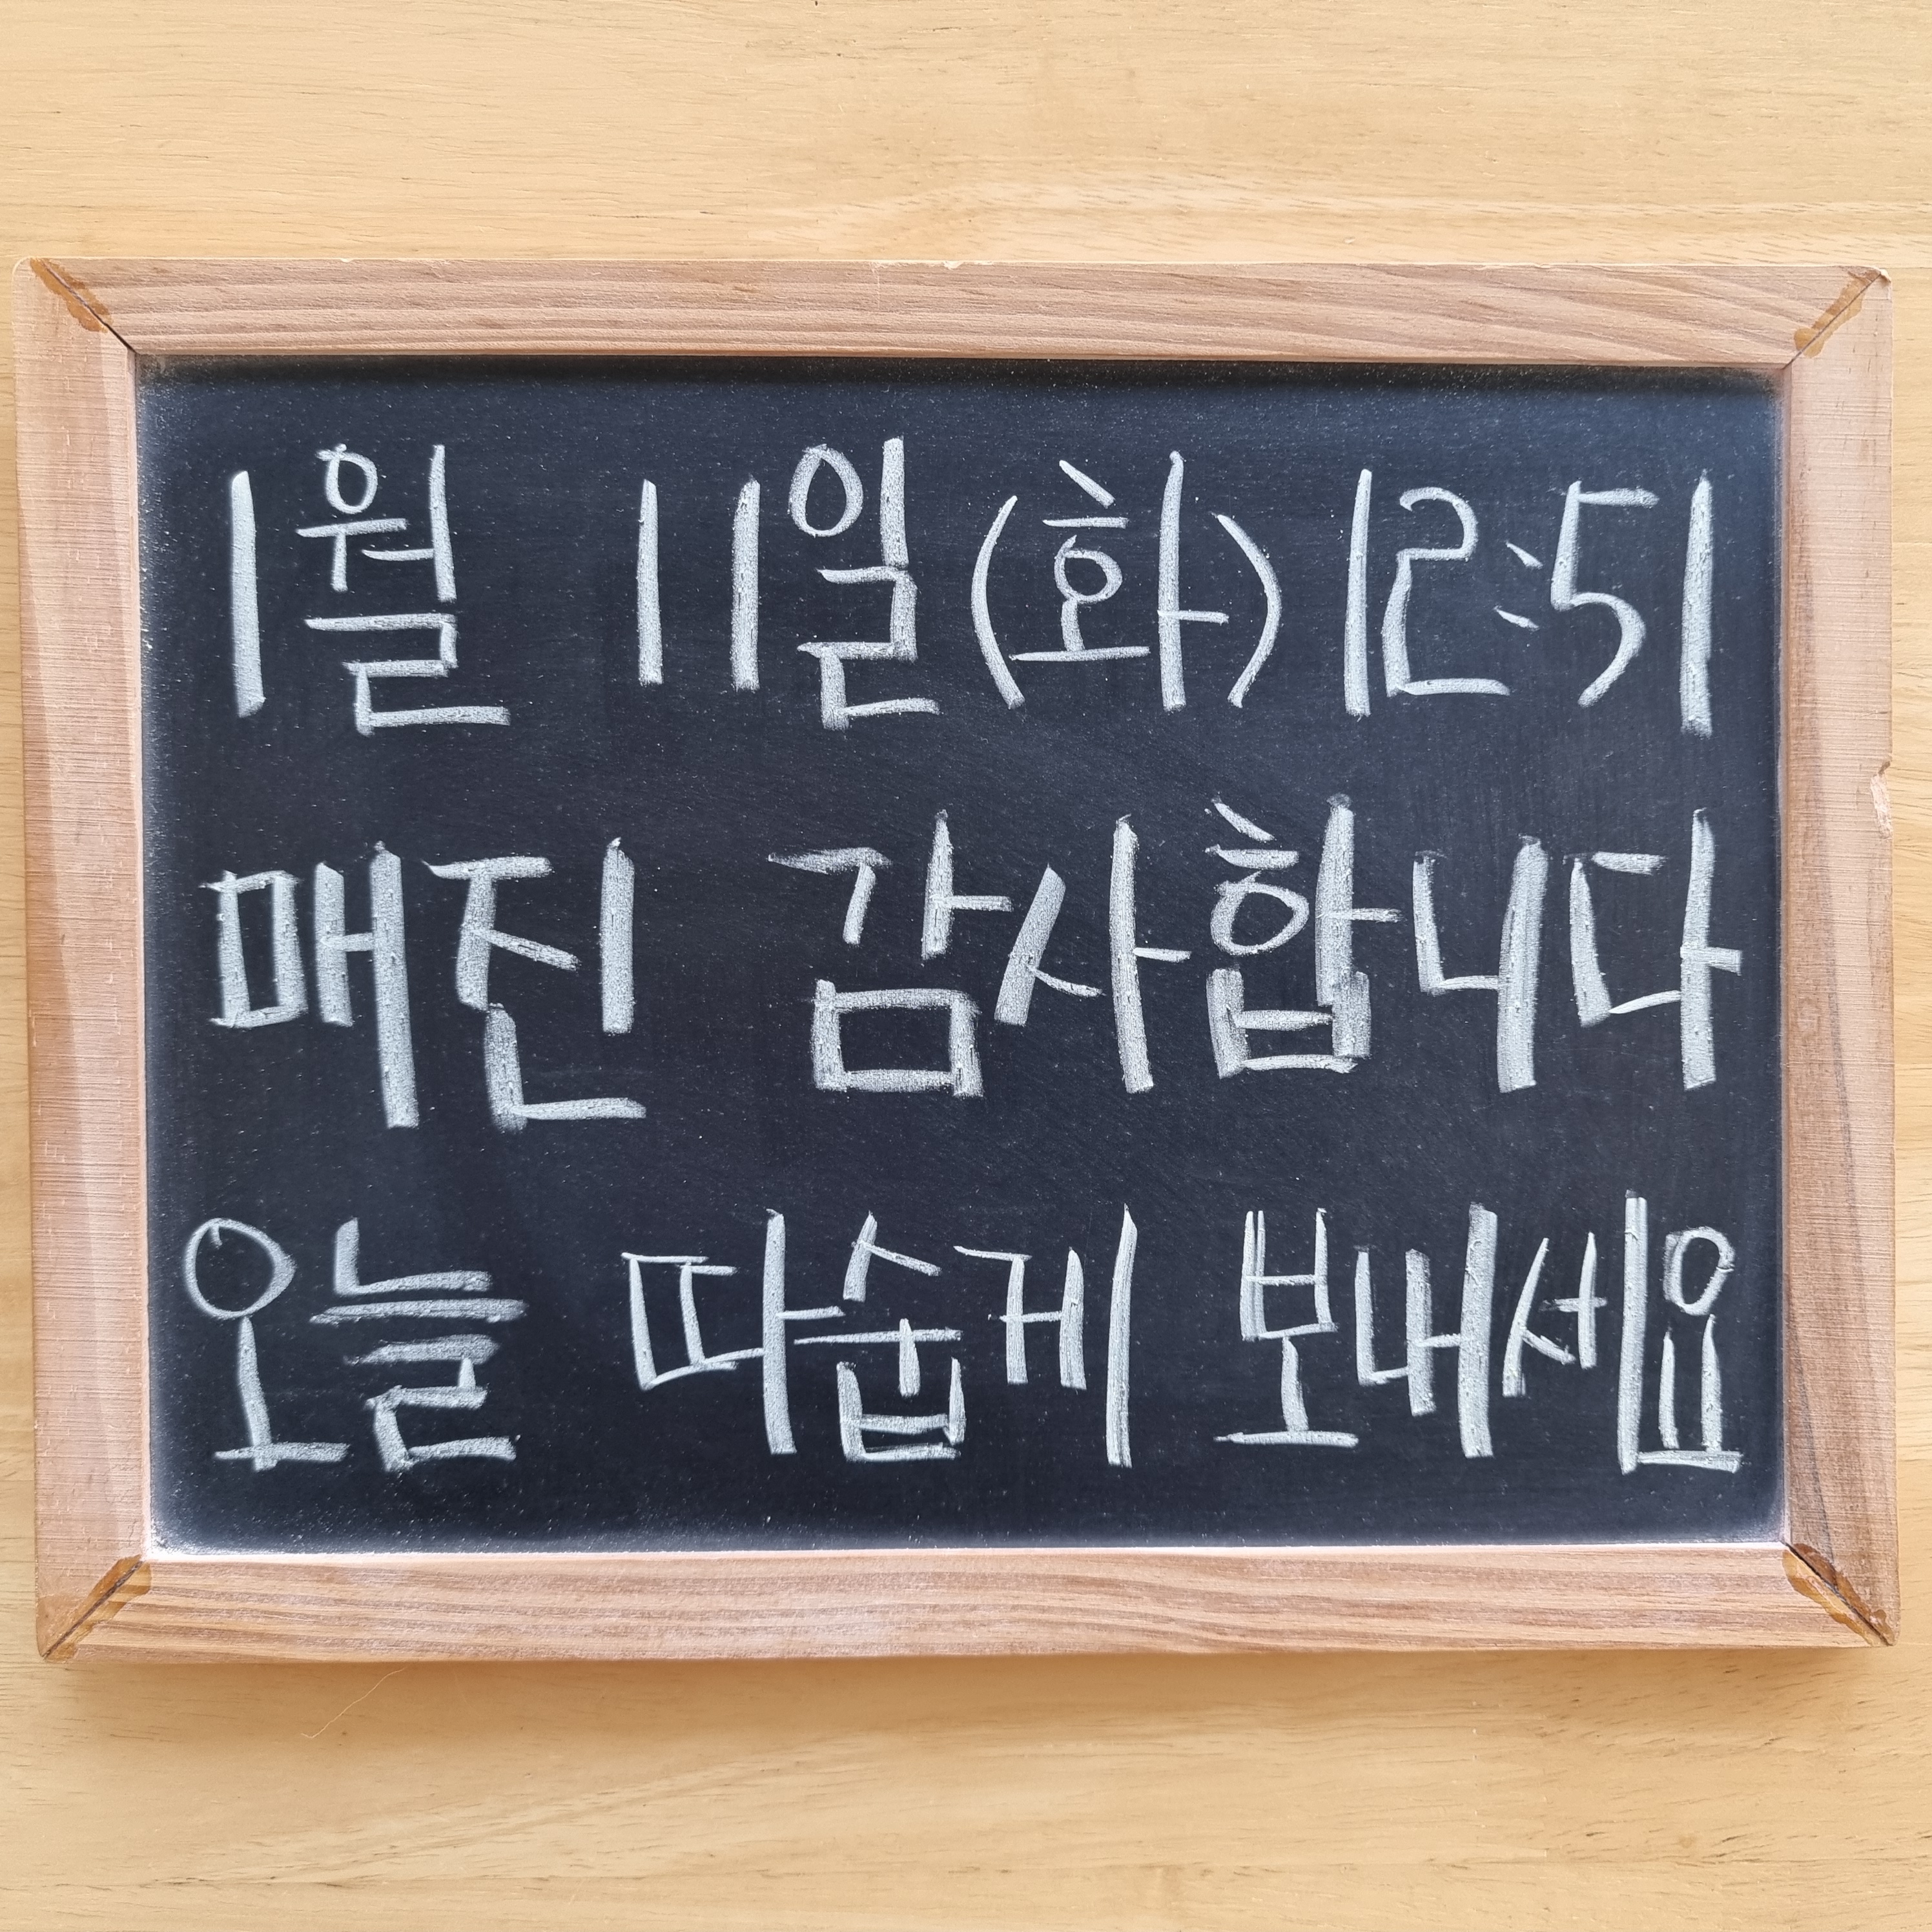 1월 11일(화) 12:51
매진 감사합니다
오늘 따숩게 보내세요